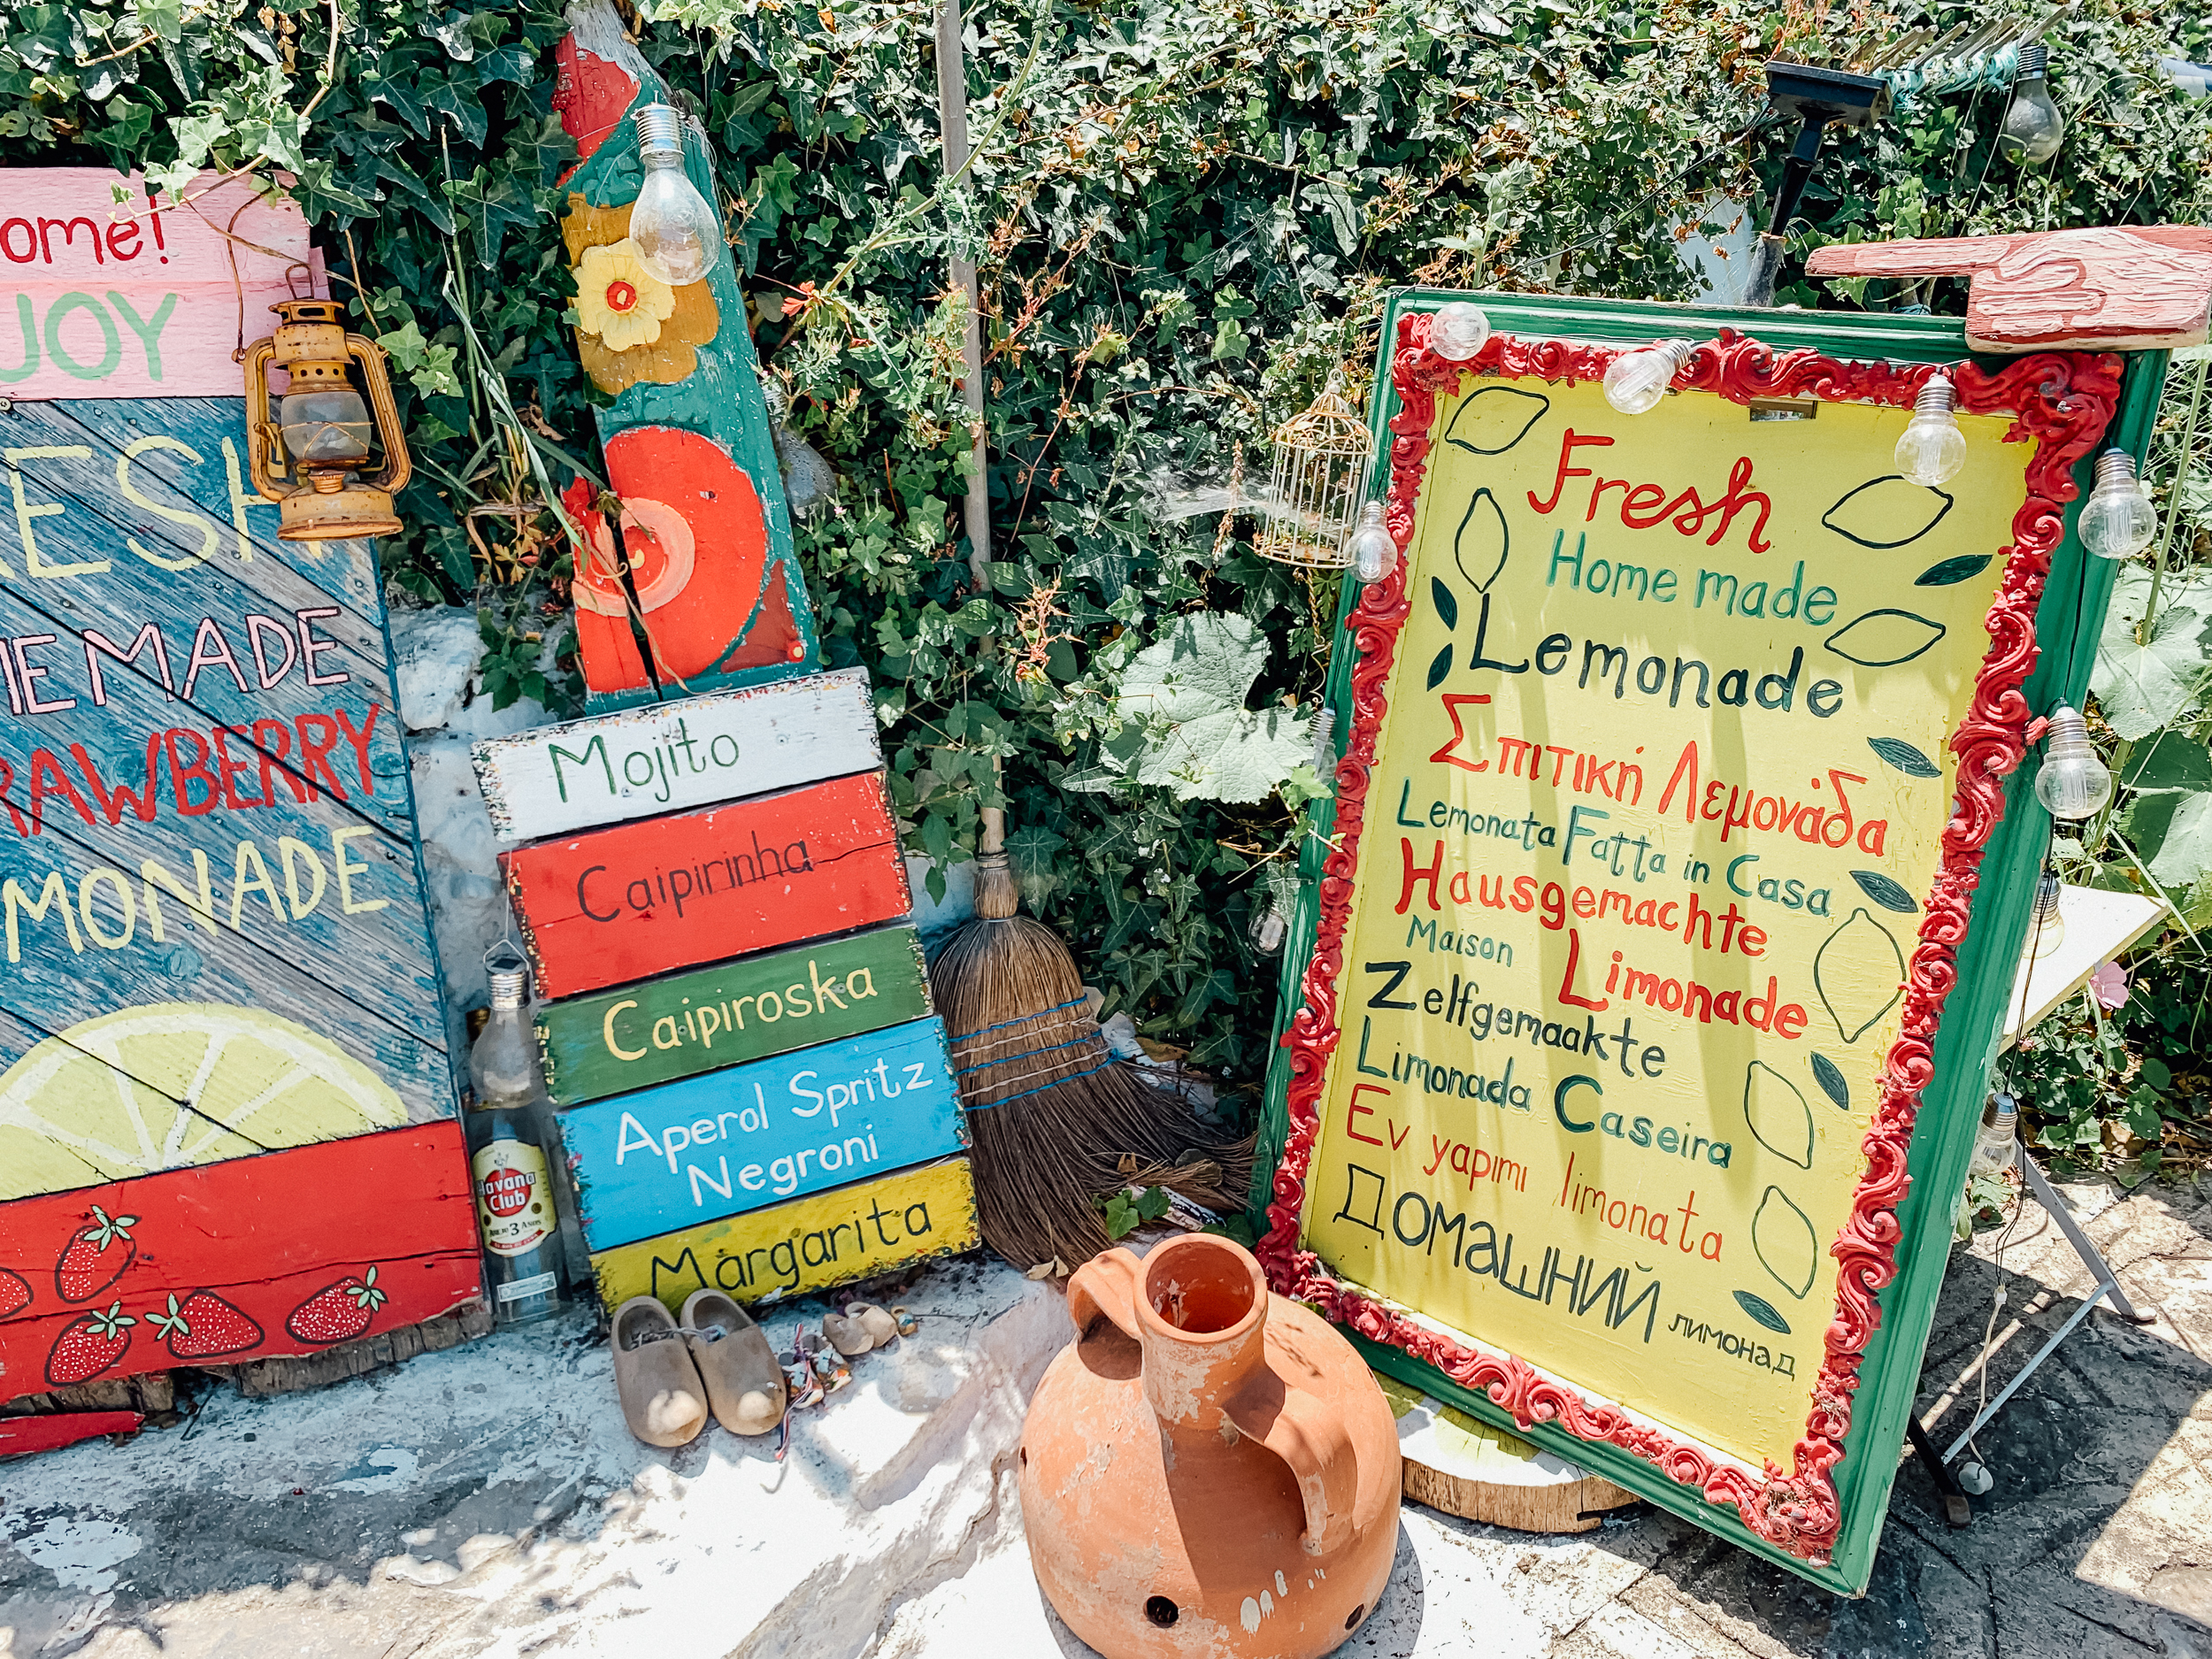 ome!
JOY
ESH
ME MADE
RAWBERRY
MONADE
Havana
Club
AÑEJO 3 AÑOS
Mojito
Caipirinha
Caipiroska
Aperol Spritz
Negroni
Margarita
Fresh
Home made
Lemonade
Σπιτική Λεμονάδα
Lemonata Fatta in Casa
Hausgemachte
Maison Limonade
Zelfgemaakte
Limonada Caseira
Ev yapımı limonata
Домашний лимонад